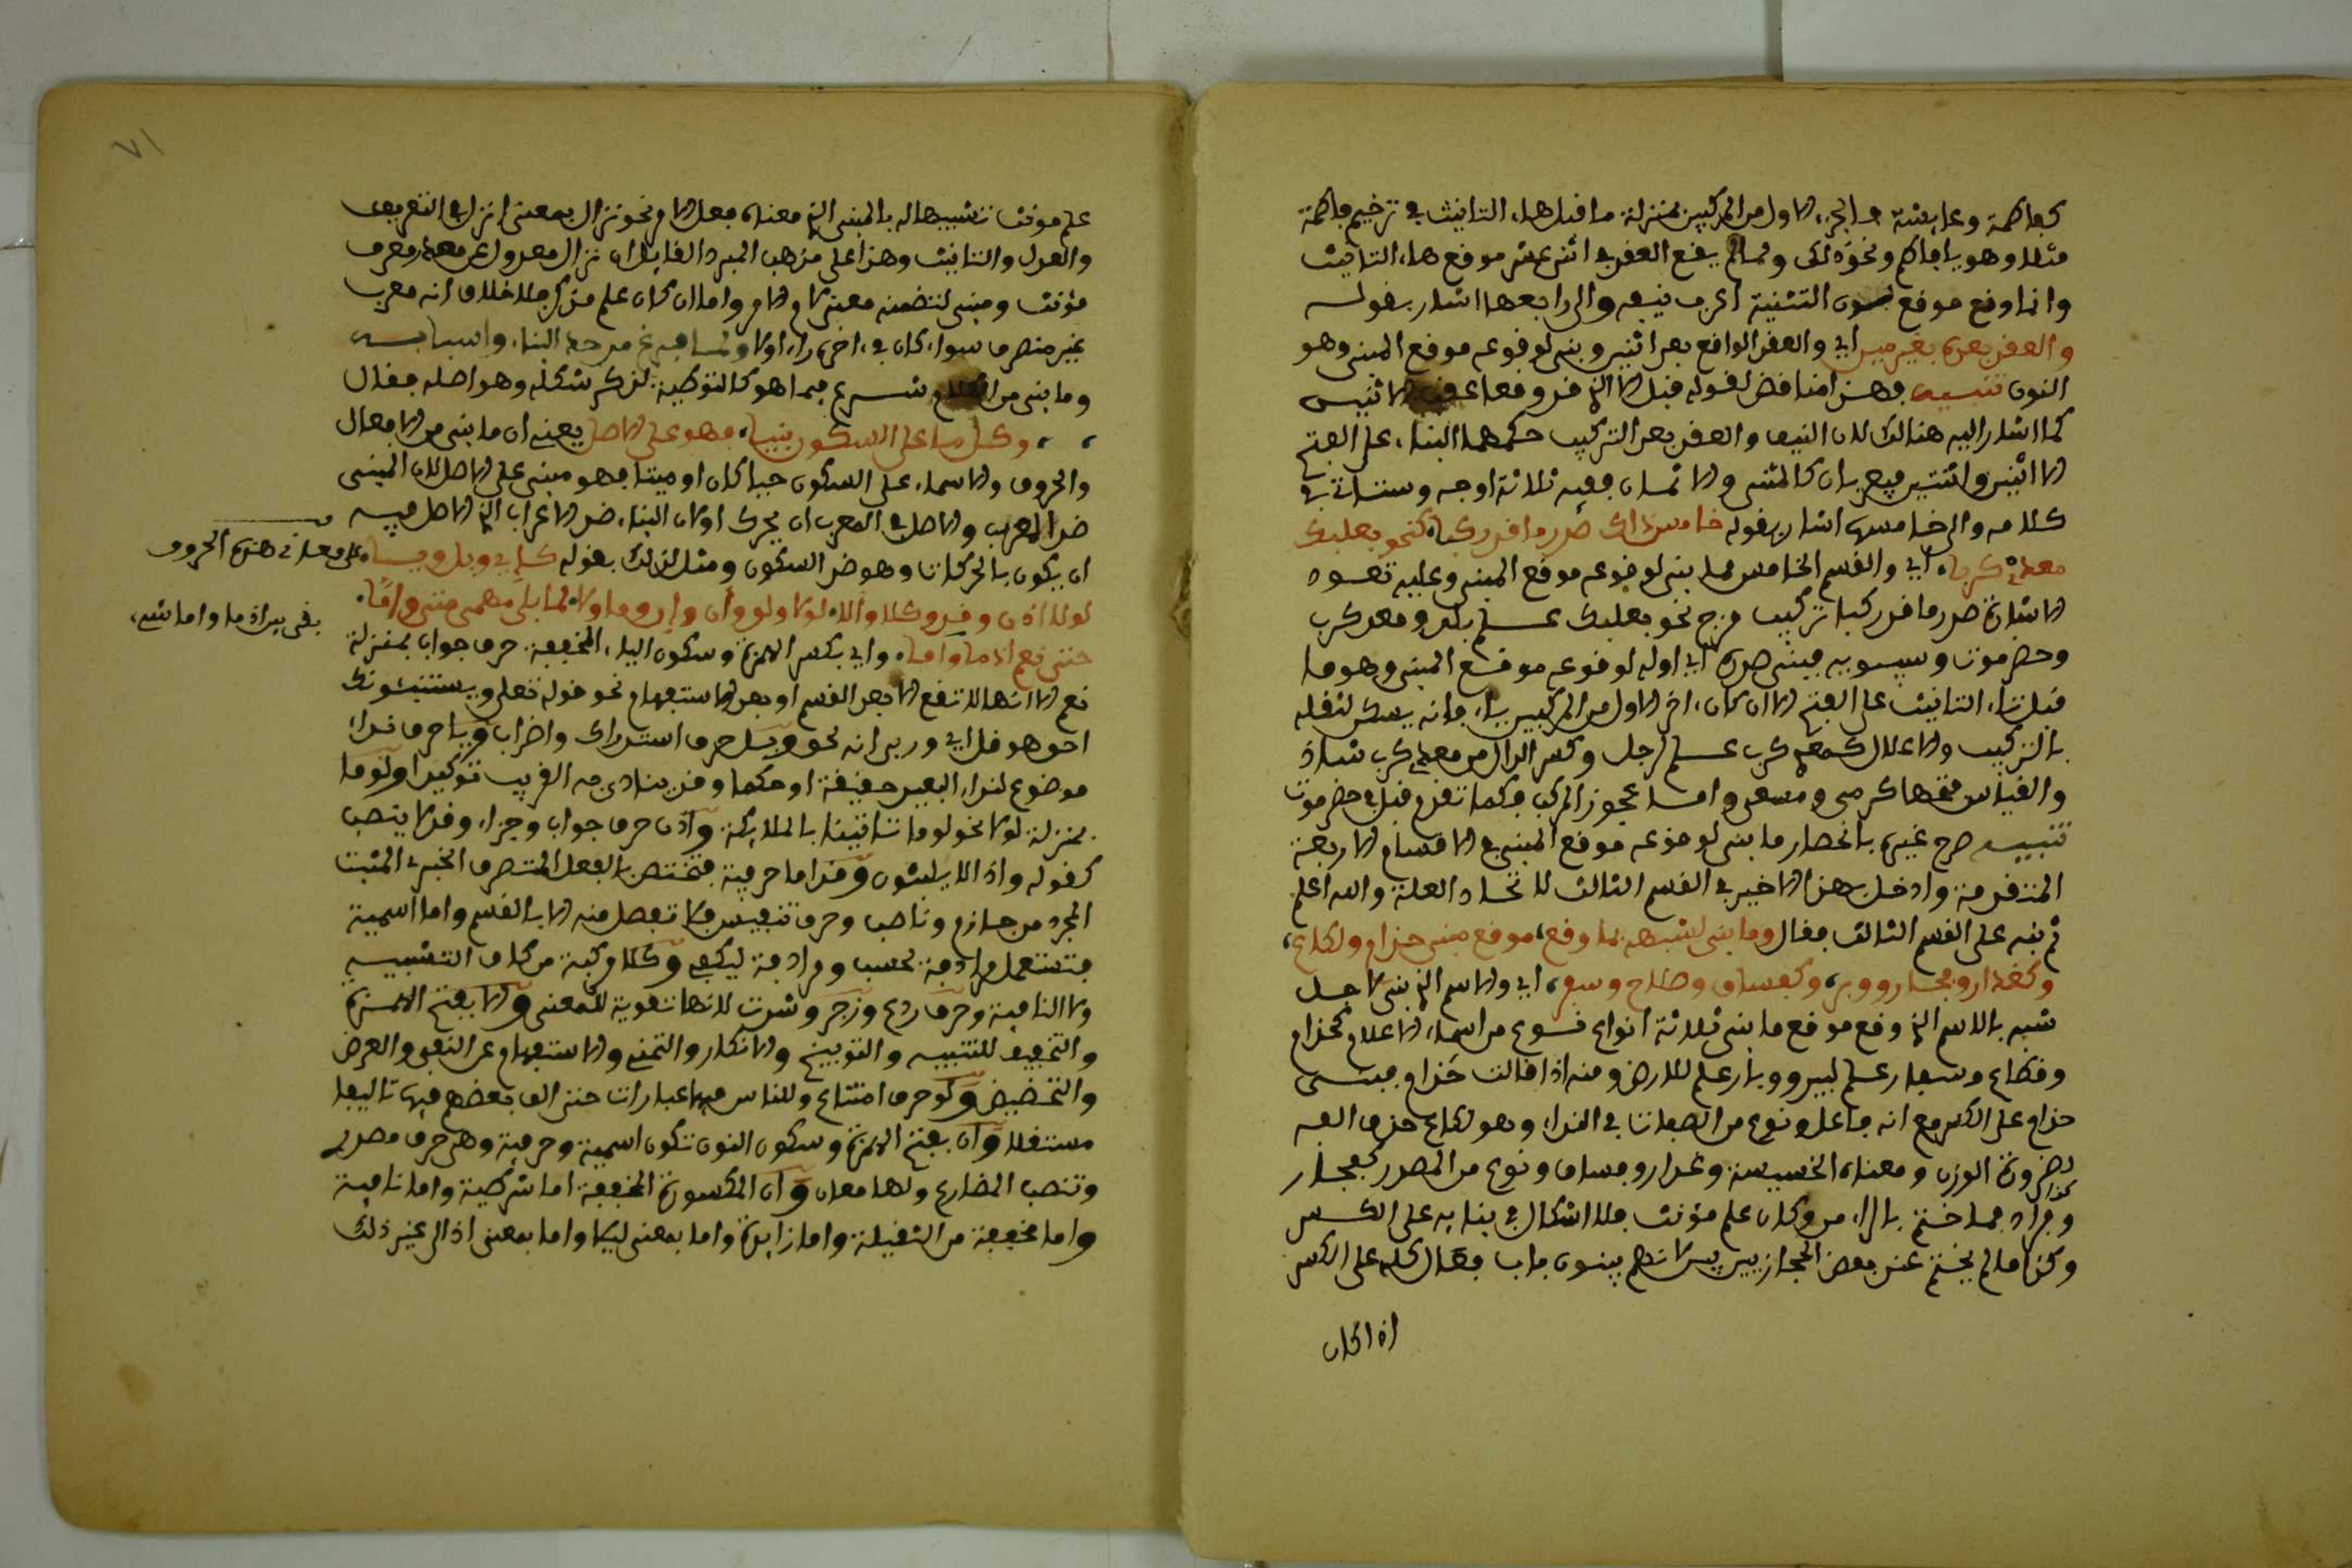 كفاطمة وعايشة فالجزء الاول من المركبين بمنزلة ما قبل هاء التانيث في ترخيم فاطمة
مثلا وهو يا فاطم ونحو ذلك ولما لم يقع العجز في اثني عشر موقع هاء التانيث
وانما وقع موقع نون التثنية اعرب نيفه والى رابعها اشار بقوله
والعجز بعده بغير مين اي والعجز الواقع بعد اثنين وبني لوقوعه موقع المبني وهو
النون تنبيه فهذا مناقض لقوله قبل الا الذي قد وقعا عجز الاثنين
كما اشار اليه هنالك لان النيف والعجز بعد التركيب حكمهما البناء على الفتح
الا اثنين واثنتين فيعربان كالمثنى والا ثمان ففيه ثلاثة اوجه وستاتي في
كلامه والى خامسها اشار بقوله خامس ذاك صدر ما قد ركبا كنحو بعلبك
معدي كربا اي والقسم الخامس مما بني لوقوعه موقع المبني وعليه تعود
الاشارة صدر ما قد ركبا تركيب مزج نحو بعلبك علم بلد ومعد كرب
وحضرموت وسيبويه فبني صدره اي اوله لوقوعه موقع المبني وهو ما
قبل تاء التانيث على الفتح الا ان كان اخر الاول من المركبين ياء فانه يسكن لثقله
بالتركيب والاعلال كمعدي كرب علم رجل وكسر الدال من معدي كرب شاذ
والقياس فتحها كرمى ومسعى واما عجوز المركب فكما تقدم قبل في حضرموت
تنبيه صرح غيره بانحصار ما بني لوقوعه موقع المبني في الاقسام الاربعة
المتقدمة وادخل هذا الاخير في القسم الثالث لاتحاد العلة والله اعلم
ثم نبه على القسم الثالث فقال وما بني لشبهه بما وقع موقع مبني حذام ولكاع
وكغدار وفجار ووبر وكفساق وصلاح وسفر اي والاسم الذي بني لاجل
شبه بالاسم الذي وقع موقع ما بني ثلاثة انواع نوع من اسماء الاعلام كحذام
وقطام وسفار علم لبير ووبار علم للارض ومنه اذا قالت حذام فبني
حذام على الكسر مع انه فاعل ونوع من الصفات في النداء وهو لكاع حذف الفه
لضرورة الوزن ومعناه الخسيسة وغدار وفساق ونوع من المصدر كفجار
وقراد مما ختم بالراء من وكان علم مؤنث فلا اشكال في بنايه على الكسر
وكذا ما لم يختم عند بعض الحجازيين لانهم يبنون باب فعال كله على الكسر
اذا كان
٧١
علم مونث تشبيها له بالمبني الذي معناه فعل الامر نحو نزال بمعنى انزل في التعريف
والعدل والتانيث وهذا على مذهب المبرد القايل ان نزال معدول عن مصدر معرف
مؤنث ومبني لتضمنه معنى لام الامر واما ان كان علم مذكر فلا خلاف انه معرب
غير منصرف سواء كان في اخره راء اولا ولما فرغ من حد البناء واسبابه
وما بني من الكلام شرع فيما هو كالتوطية لذكر شكله وهو اصله فقال
وكل ما على السكون بنيا فهو على الاصل يعني ان ما بني من الافعال
والحروف والاسماء على السكون حيا كان او ميتا فهو مبني على الاصل لان المبني
ضد المعرب والاصل في المعرب ان يحرك اولان البناء ضد الاعراب الذي الاصل فيه
ان يكون بالحركات وهو ضد السكون ومثل لذلك بقوله كاي وبل ويا
على معاني هذه الحروف
لولا اذن وقد وكلا والا لولا ولو وان وان وما ولا لما بلى مهمى متى واما
بقى بيرادما واما شي
حتى نعم اذما واما واي بكسر الهمزة وسكون الياء المخففة حرف جواب بمنزلة
نعم الا انها لا تقع الا بعد القسم او بعد الاستفهام نحو قوله تعلى ويستنبئونك
احق هو قل اي وربي انه لحق وبل حرف استدراك واضراب ويا حرف نداء
موضوع لنداء البعيد حقيقة او حكما وقد ينادى به القريب توكيدا ولوما
بمنزلة لولا نحو لوما تاتينا بالملائكة واذن حرف جواب وجزاء وقد لا ينصب
كقوله واذا لا يلبثون وقد اما حرفية فتختص بالفعل المتصرف الخبري المثبت
المجرد من جازم وناصب وحرف تنفيس فلا تفصل منه الا بالقسم واما اسمية
فتستعمل مرادفة لحسب ومرادفة ليكفي وكلا مركبة من كاف التشبيه
ولا النافية وحرف ردع وزجر وشدت لانها تقوية للمعنى والا بفتح الهمزة
والتخفيف للتنبيه والتوبيخ والانكار والتمني والاستفهام عن النفي والعرض
والتخضيض ولو حرف امتناع وللناس فيها عبارات حتى الف بعضهم فيها تاليفا
مستقلا وان بفتح الهمزة وسكون النون تكون اسمية وحرفية وهي حرف مصدري
وتنصب المضارع ولها معان وان المكسورة المخففة اما شرطية واما نافية
واما مخففة من الثقيلة واما زايدة واما بمعنى ليلا واما بمعنى اذ الى غير ذلك